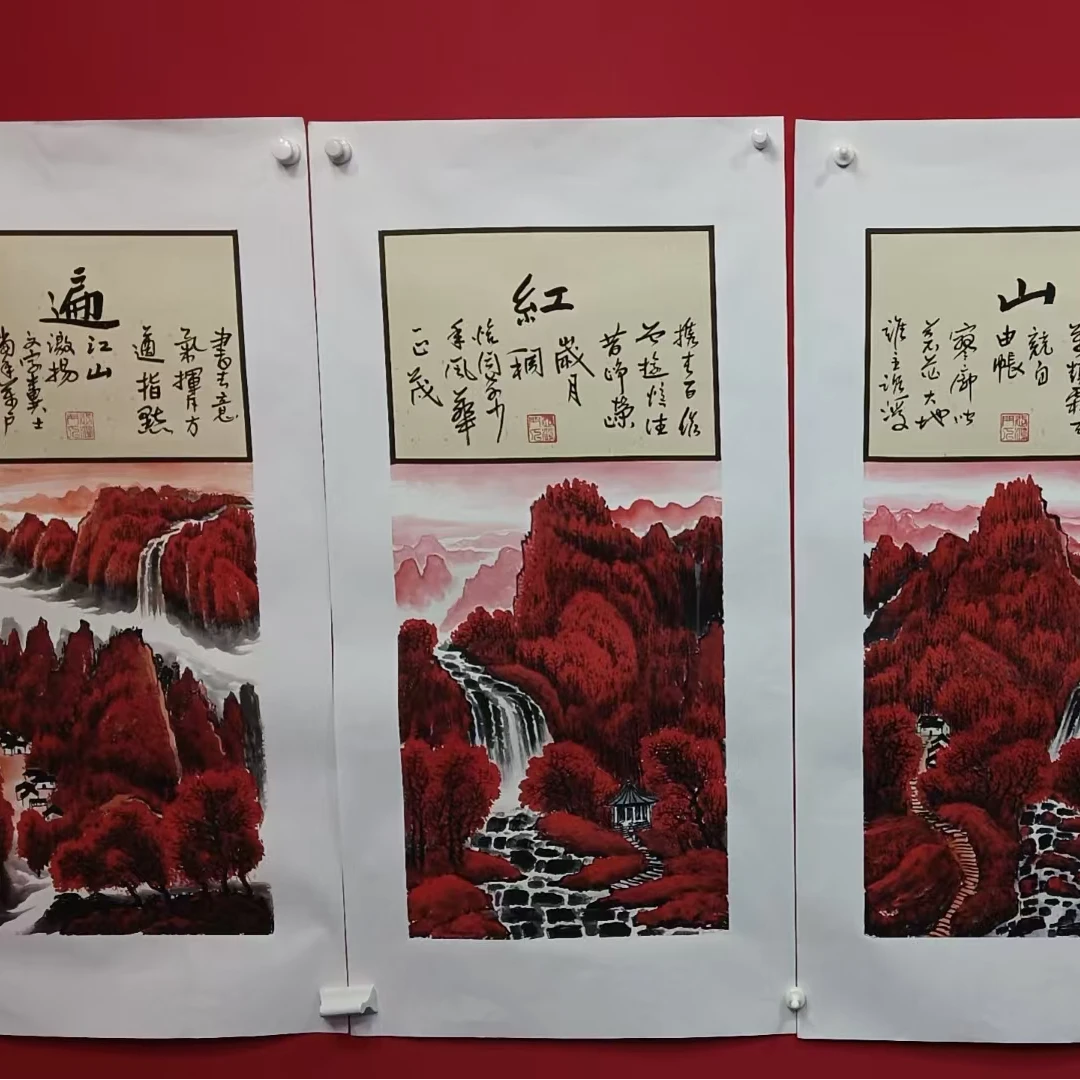 山
競自
由帳
寥廓问
苍茫大地
谁主沉浮
紅
携来百侣
曾遊憶往
昔崢嶸
歲月
稠
恰同学少
年風華
正茂
遍
書生意
氣揮斥方
遒指點
江山
激揚
文字糞土
當年萬户